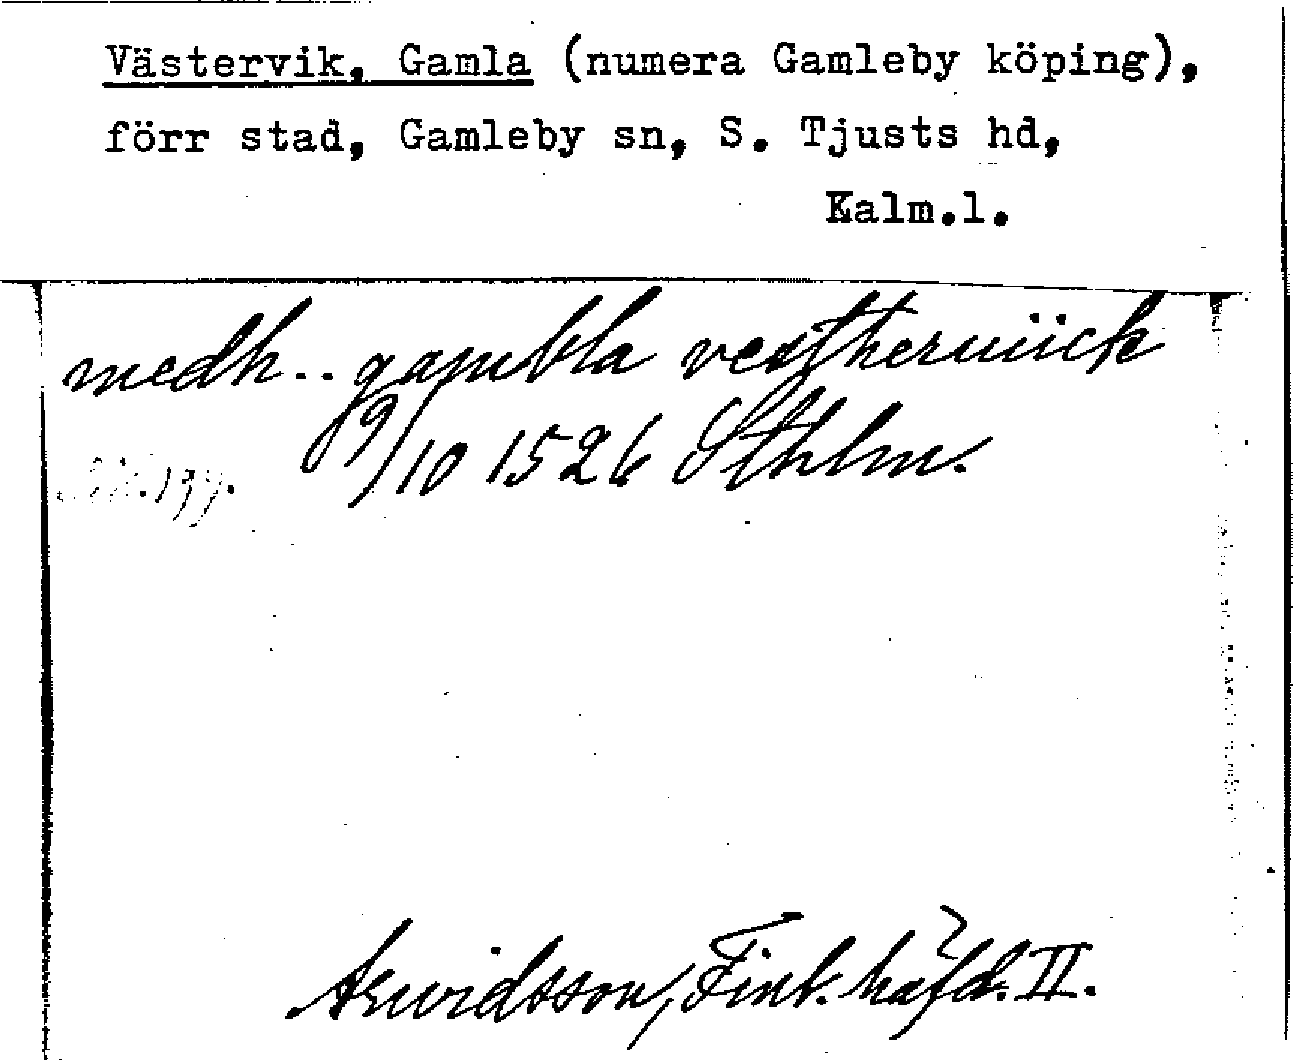 Västervik, Gamla (numera Gamleby köping),
förr stad, Gamleby sn, S. Tjusts hd,
Kalm.l.
medh.. gambla vestherniick
9/10 1526 Sthlm.
Arwidsson, Finl. häfd. II.